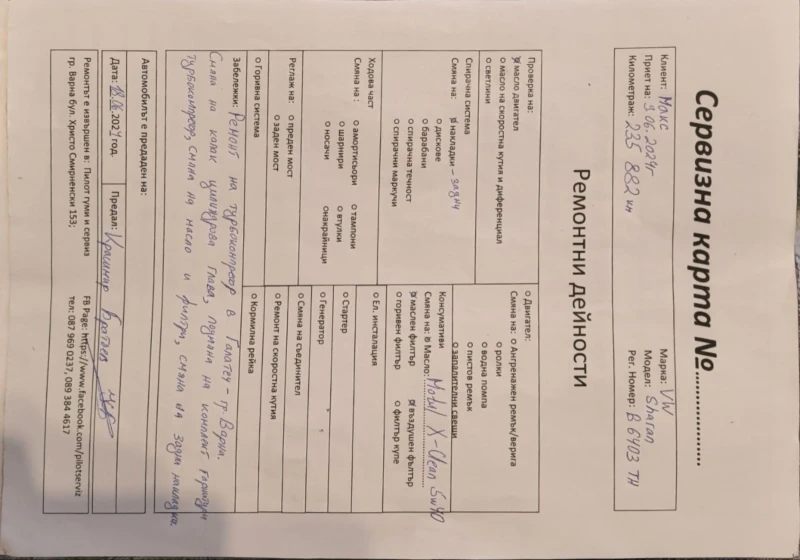 Сервизна карта №..................
Клиент: Макс
Приет на: 3.06.2024г
Километраж: 235 882 км
Марка: VW
Модел: Sharan
Рег. Номер: В 6403 ТН
Ремонтни дейности
Проверка на:
масло двигател
о масло на скоростна кутия и диференциал
о светлини
Спирачна система
Смяна на: накладки - задни
о дискове
о барабани
о спирачна течност
о спирачни маркучи
Ходова част
Смяна на: о амортисьори о тампони
о шарнири о втулки
о носачи онакрайници
Реглаж на: о преден мост
о заден мост
о Горивна система
о Двигател:
Смяна на: о Ангренажен ремък/верига
о ролки
о водна помпа
о пистов ремък
о запалителни свещи
Консумативи
Смяна на: Масло: Motul X-Clean 5w40
маслен филтър въздушен фълтър
о горивен филтър о филтър купе
о Ел. инсталация
о Стартер
о Генератор
о Смяна на съединител
о Ремонт на скоростна кутия
о Кормилна рейка
Забележки: Ремонт на турбокомпресор в Галатех - гр. Варна.
Смяна на капак цилиндрова глава, подмяна на комплект гарнитури
турбокомпресор, смяна на масло и филтри, смяна на задни накладки.
Автомобилът е предаден на:
Дата: 18.06.2024 год. Предал: Красимир
Ремонтът е извършен в: Пилот гуми и сервиз
гр. Варна бул. Христо Смирненски 153;
FB Page: https://www.facebook.com/pilotserviz
тел: 087 969 0237, 089 384 4617